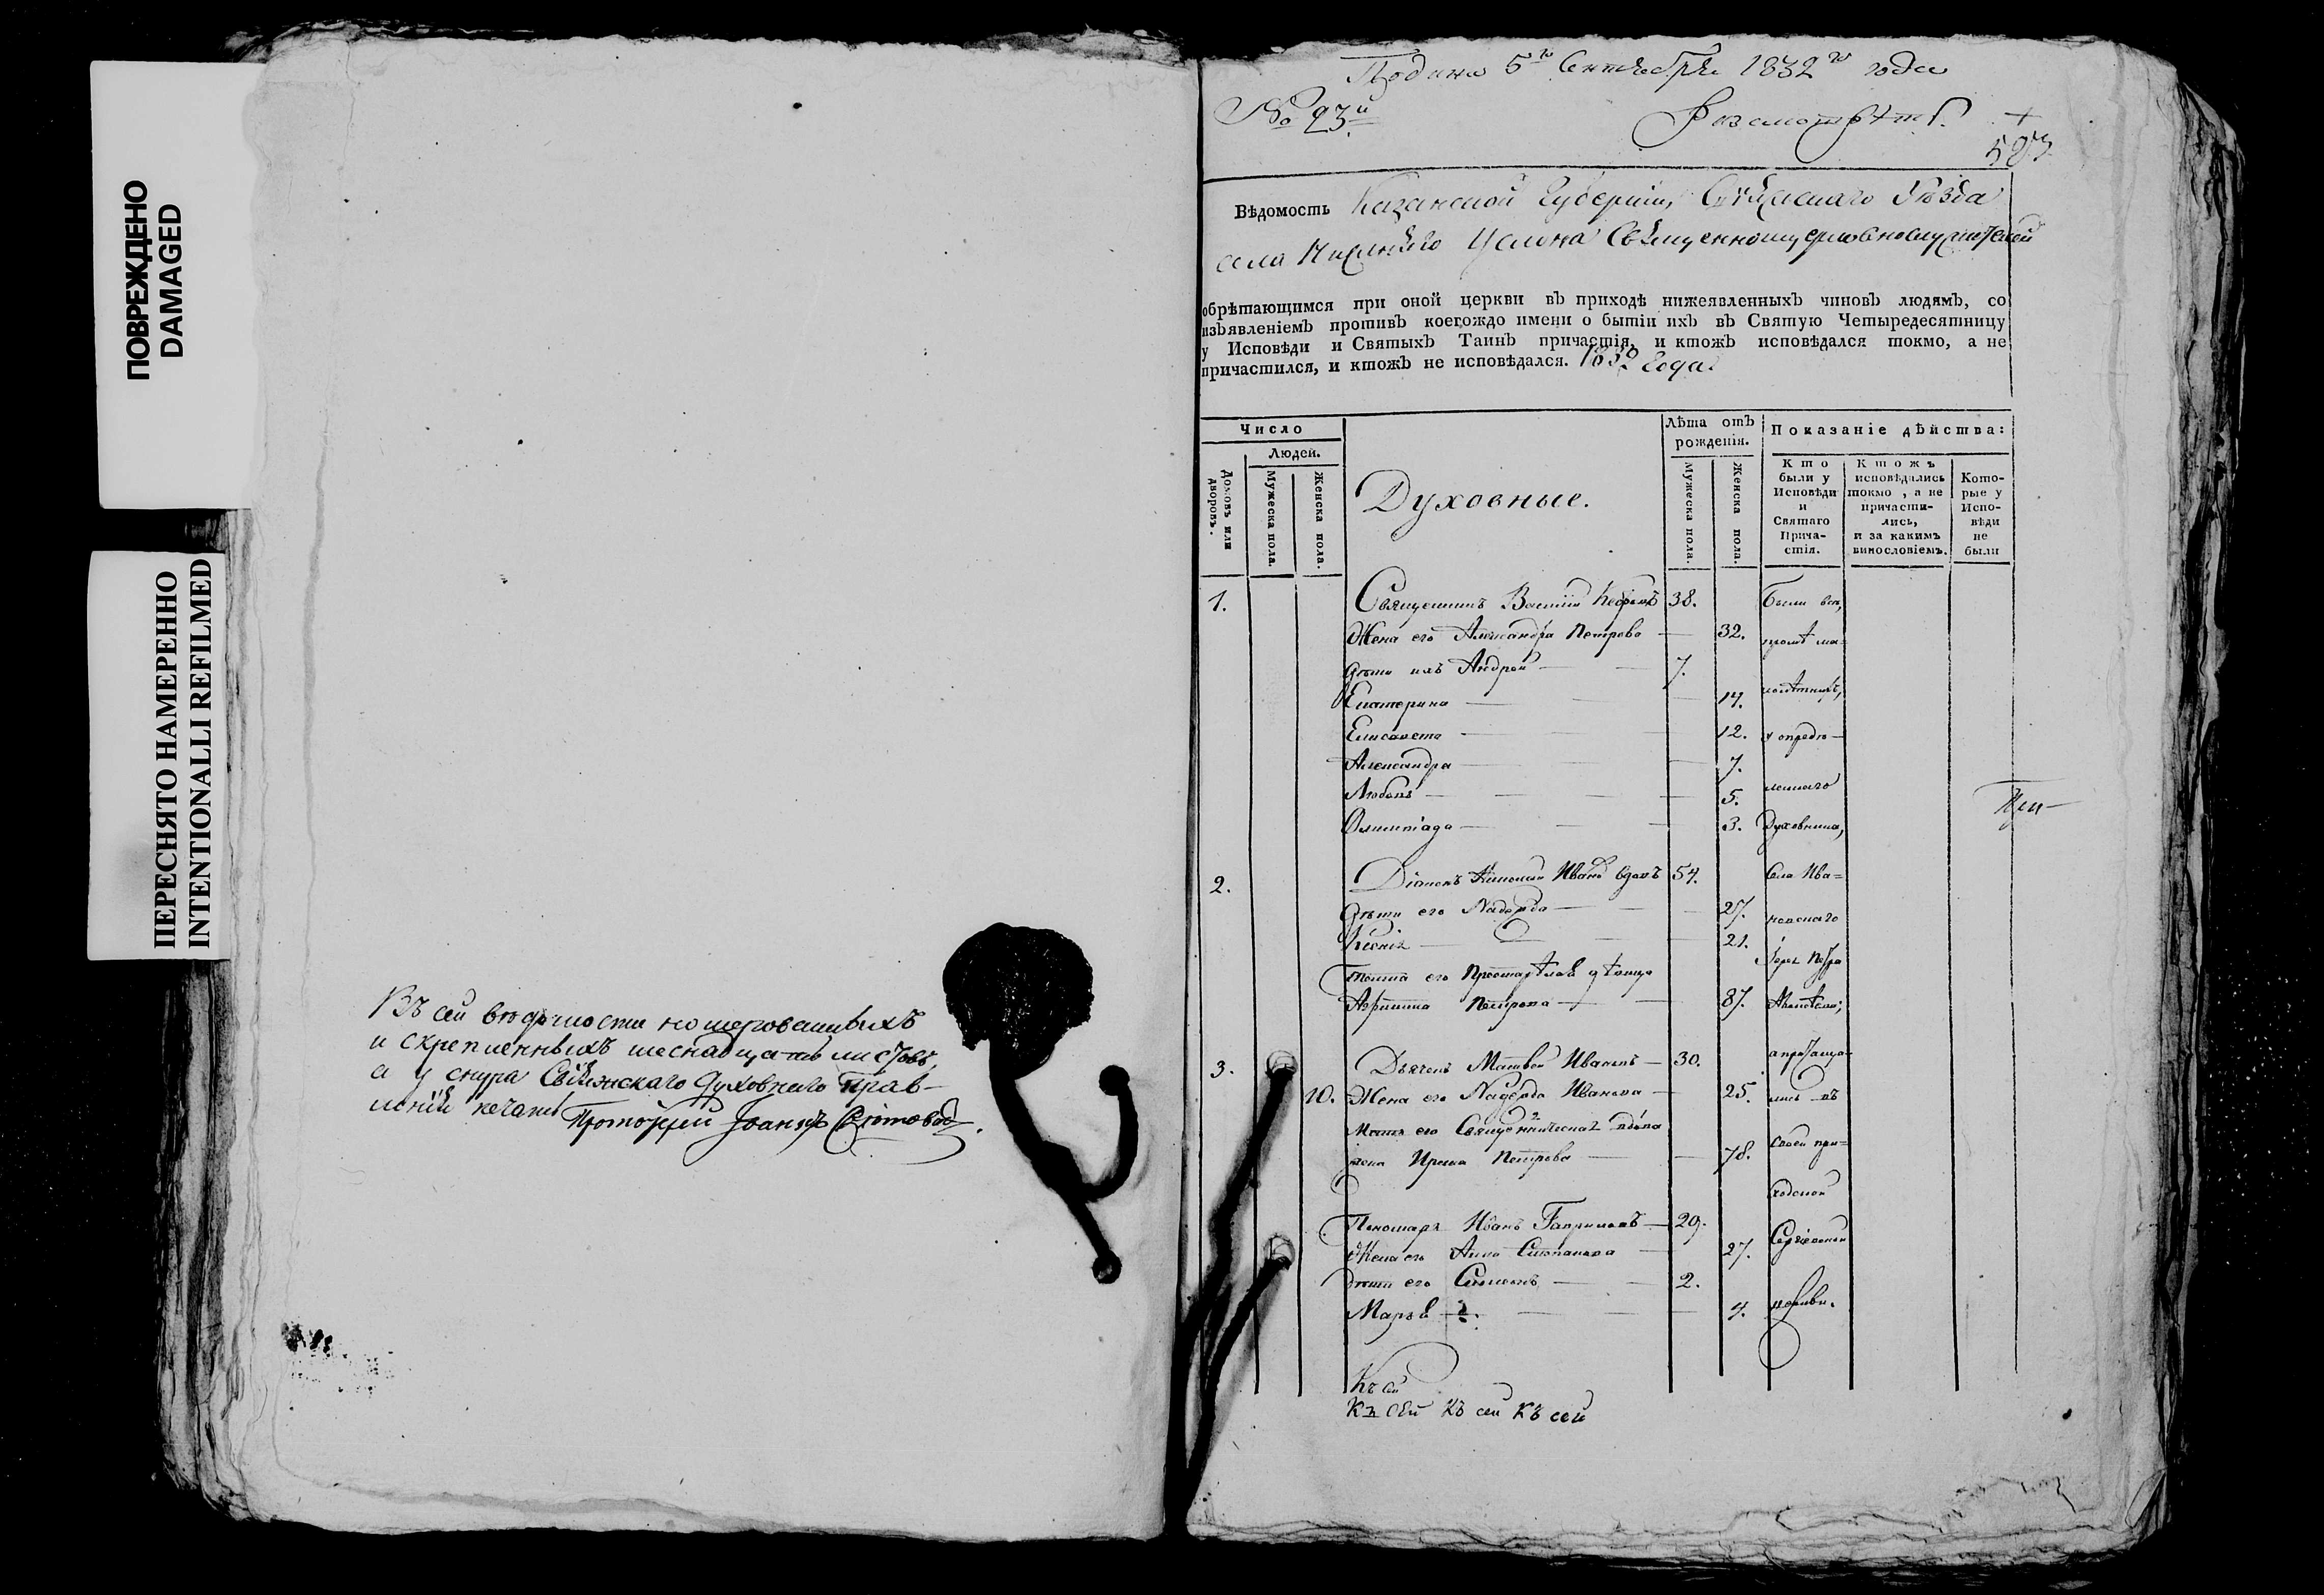 ПОВРЕЖДЕНО
DAMAGED
ПЕРЕСНЯТО НАМЕРЕННО
INTENTIONALLI REFILMED
Въ сей ведомости номерованныхъ
и скрепленныхъ шеснадцать листовъ,
а у снура Свіяжскаго Духовнаго Прав-
ленія печать Протоіерей Іоаннъ
Подана 5го Сентября 1832го года
№ 23й
Вѣдомость Казанской Губерніи, Свіяжскаго Уѣзда
села Нижняго Услона Священноцерковнослужителей
обрѣтающимся при оной церкви въ приходѣ нижеявленныхъ чиновъ людямъ, со
изъявленіемъ противъ коегождо имени о бытіи ихъ въ Святую Четыредесятницу
у Исповѣди и Святыхъ Таинъ причастія, и ктожъ исповѣдался токмо, а не
причастился, и ктожъ не исповѣдался. 1832 Года
Число
Людей.
Домовъ или дворовъ.
Мужеска пола.
Женска пола.
Духовные.
Лѣта отъ
рожденія.
Мужеска пола.
Женска пола.
Показаніе дѣйства:
Кто
были у
Исповѣди
и
Святаго
Прича-
стія.
Ктожъ
исповѣдались
токмо, а не
причасти-
лись,
и за какимъ
винословіемъ.
Кото-
рые у
Испо-
вѣди
не
были
1. Священникъ Василій 38. Были всѣ,
Жена его Александра Петрова 32. кромѣ ма-
Дѣти ихъ Андрей 7.
Екатерина 14. лолѣтныхъ,
Елисавета 12. у опредѣ-
Александра 7.
Любовь 5. леннаго
Олимпіада 3. Духовника,
2. Діаконъ Николай Иванов вдовъ 54. Села Ива-
Дѣти его Надежда 27. новскаго
Ксенія 21.
Тетка его дѣвица Іерея Петра
Петрова 87.
3. Дьячекъ Матвей Ивановъ 30. а
10. Жена его Надежда Иванова 25. лись въ
Мать его Священническая вдова своей при-
Петрова 78.
ходской
Пономарь Иванъ Гавриловъ 29.
Жена его Анна Степанова 27. Сергіевской
Дѣти его Симеонъ 2.
Марья 4. церкви.
Къ сей
Къ сей Къ сей Къ сей